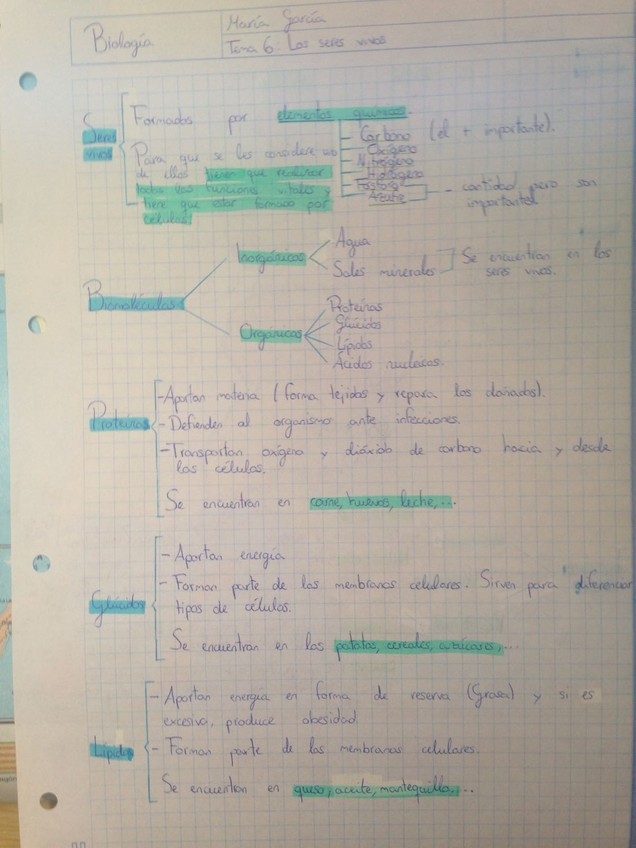 Biología
María García
Tema 6: Los seres vivos
Seres
vivos
Formados por elementos químicos.
Carbono (el + importante).
Oxígeno
Nitrógeno
Hidrógeno
Fósforo
Azufre
- cantidad pero son
importantes
Para que se les considere uno
de ellos tienen que realizar
todas las funciones vitales y
tiene que estar formado por
células.
Biomoléculas
Inorgánicas
Agua
Sales minerales
Se encuentran en los
seres vivos.
Orgánicas
Proteínas
Glúcidos
Lípidos
Ácidos nucleicos.
Proteínas
-Aportan materia (forma tejidos y repara los dañados).
-Defienden al organismo ante infecciones.
-Transportan oxígeno y dióxido de carbono hacia y desde
las células.
Se encuentran en carne, huevos, leche,...
Glúcidos
- Aportan energía
- Forman parte de las membranas celulares. Sirven para diferenciar
tipos de células.
Se encuentran en las patatas, cereales, azúcares,...
Lípidos
- Aportan energía en forma de reserva (Grasa) y si es
excesiva, produce obesidad.
- Forman parte de las membranas celulares.
Se encuentran en queso, aceite, mantequilla...